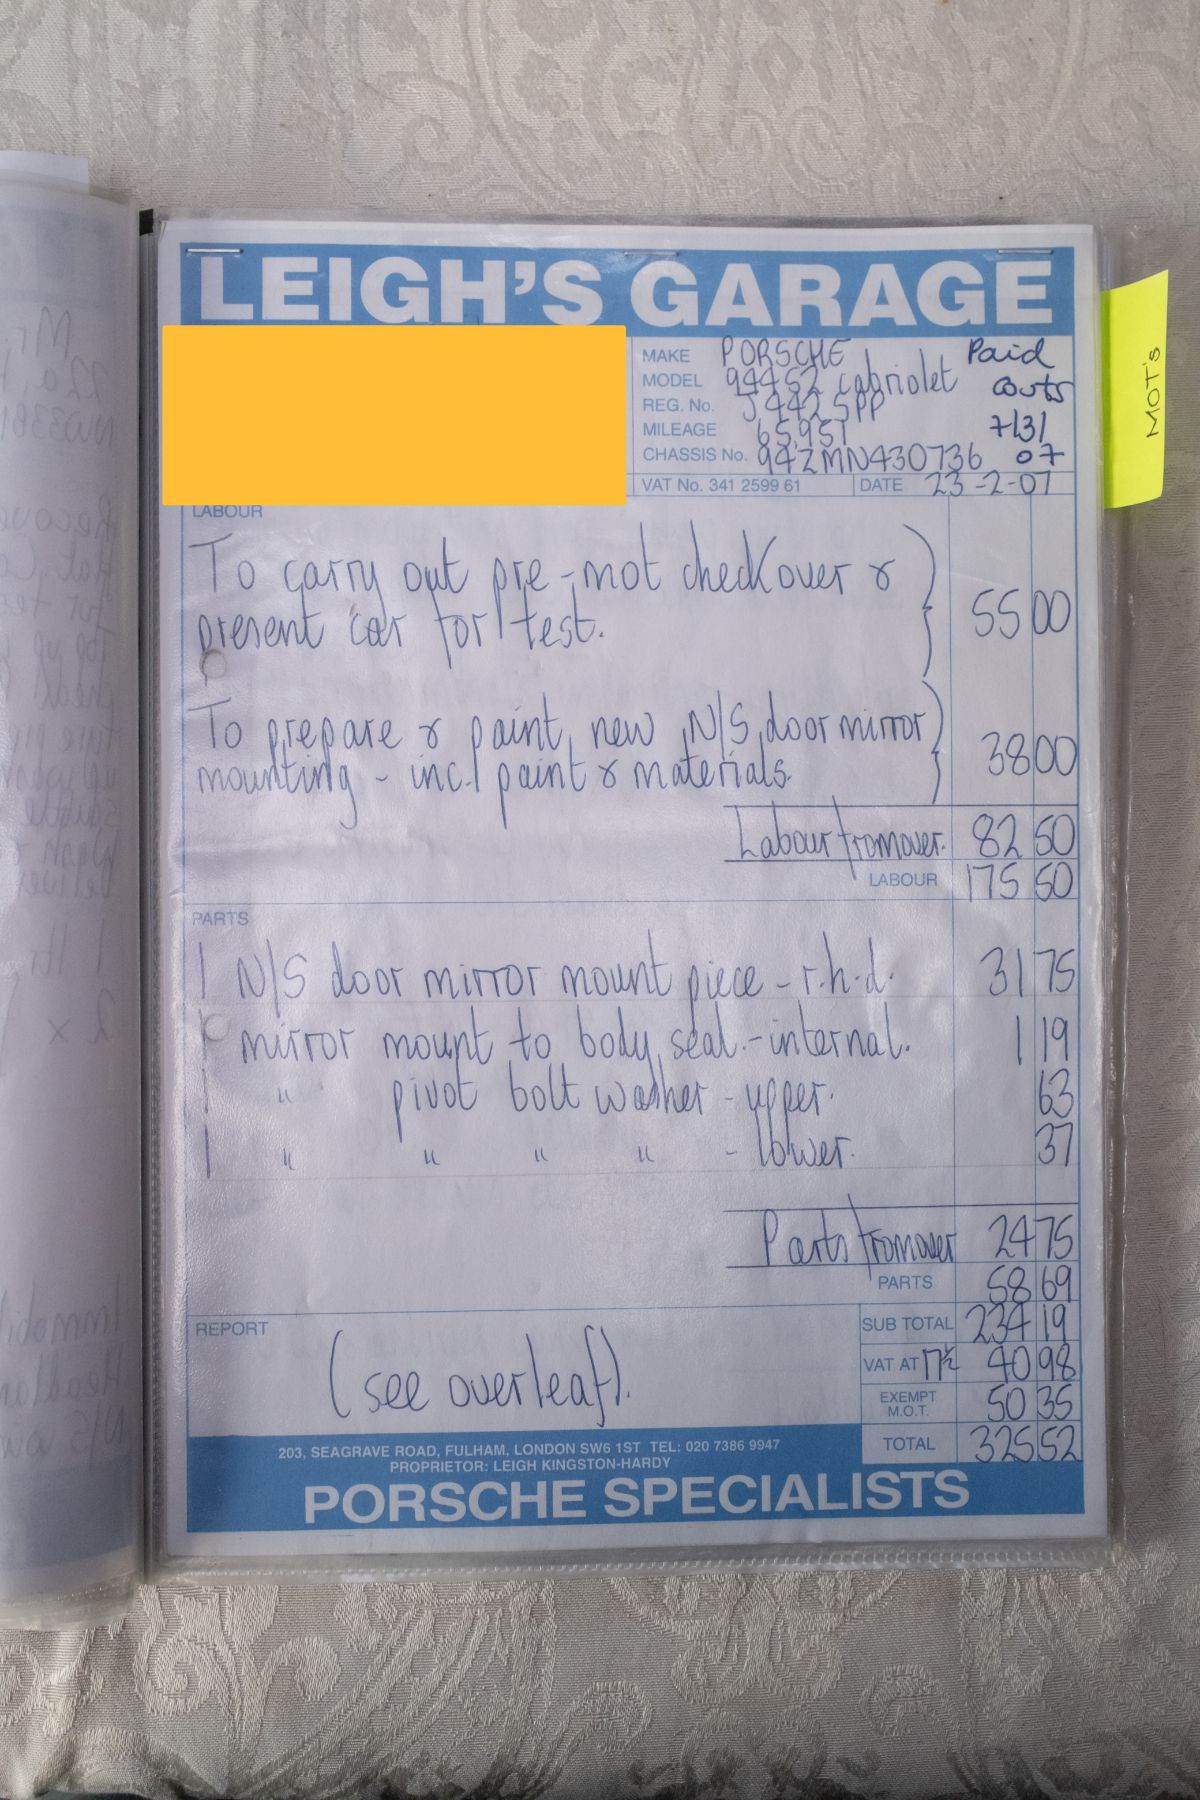 LEIGH'S GARAGE
MAKE PORSCHE
MODEL 944S2 cabriolet
REG. No. J442 SPP
MILEAGE 65,951
CHASSIS No. 94ZMN430736
Paid
Couts
7/3/
07
VAT No. 341 2599 61 DATE 23-2-07
MOT's
LABOUR
To carry out pre-mot checkover &
present car for test. 55 00
To prepare & paint new N/S door mirror
mounting - incl paint & materials. 38 00
Labour from over. 82 50
LABOUR 175 50
PARTS
1 N/S door mirror mount piece - r.h.d. 31 75
1 mirror mount to body seal - internal. 1 19
1 " pivot bolt washer - upper. 63
1 " " " " - lower. 37
Parts from over 24 75
PARTS 58 69
REPORT
(see overleaf).
SUB TOTAL 234 19
VAT AT 17½ 40 98
EXEMPT
M.O.T. 50 35
TOTAL 325 52
203, SEAGRAVE ROAD, FULHAM, LONDON SW6 1ST TEL: 020 7386 9947
PROPRIETOR: LEIGH KINGSTON-HARDY
PORSCHE SPECIALISTS